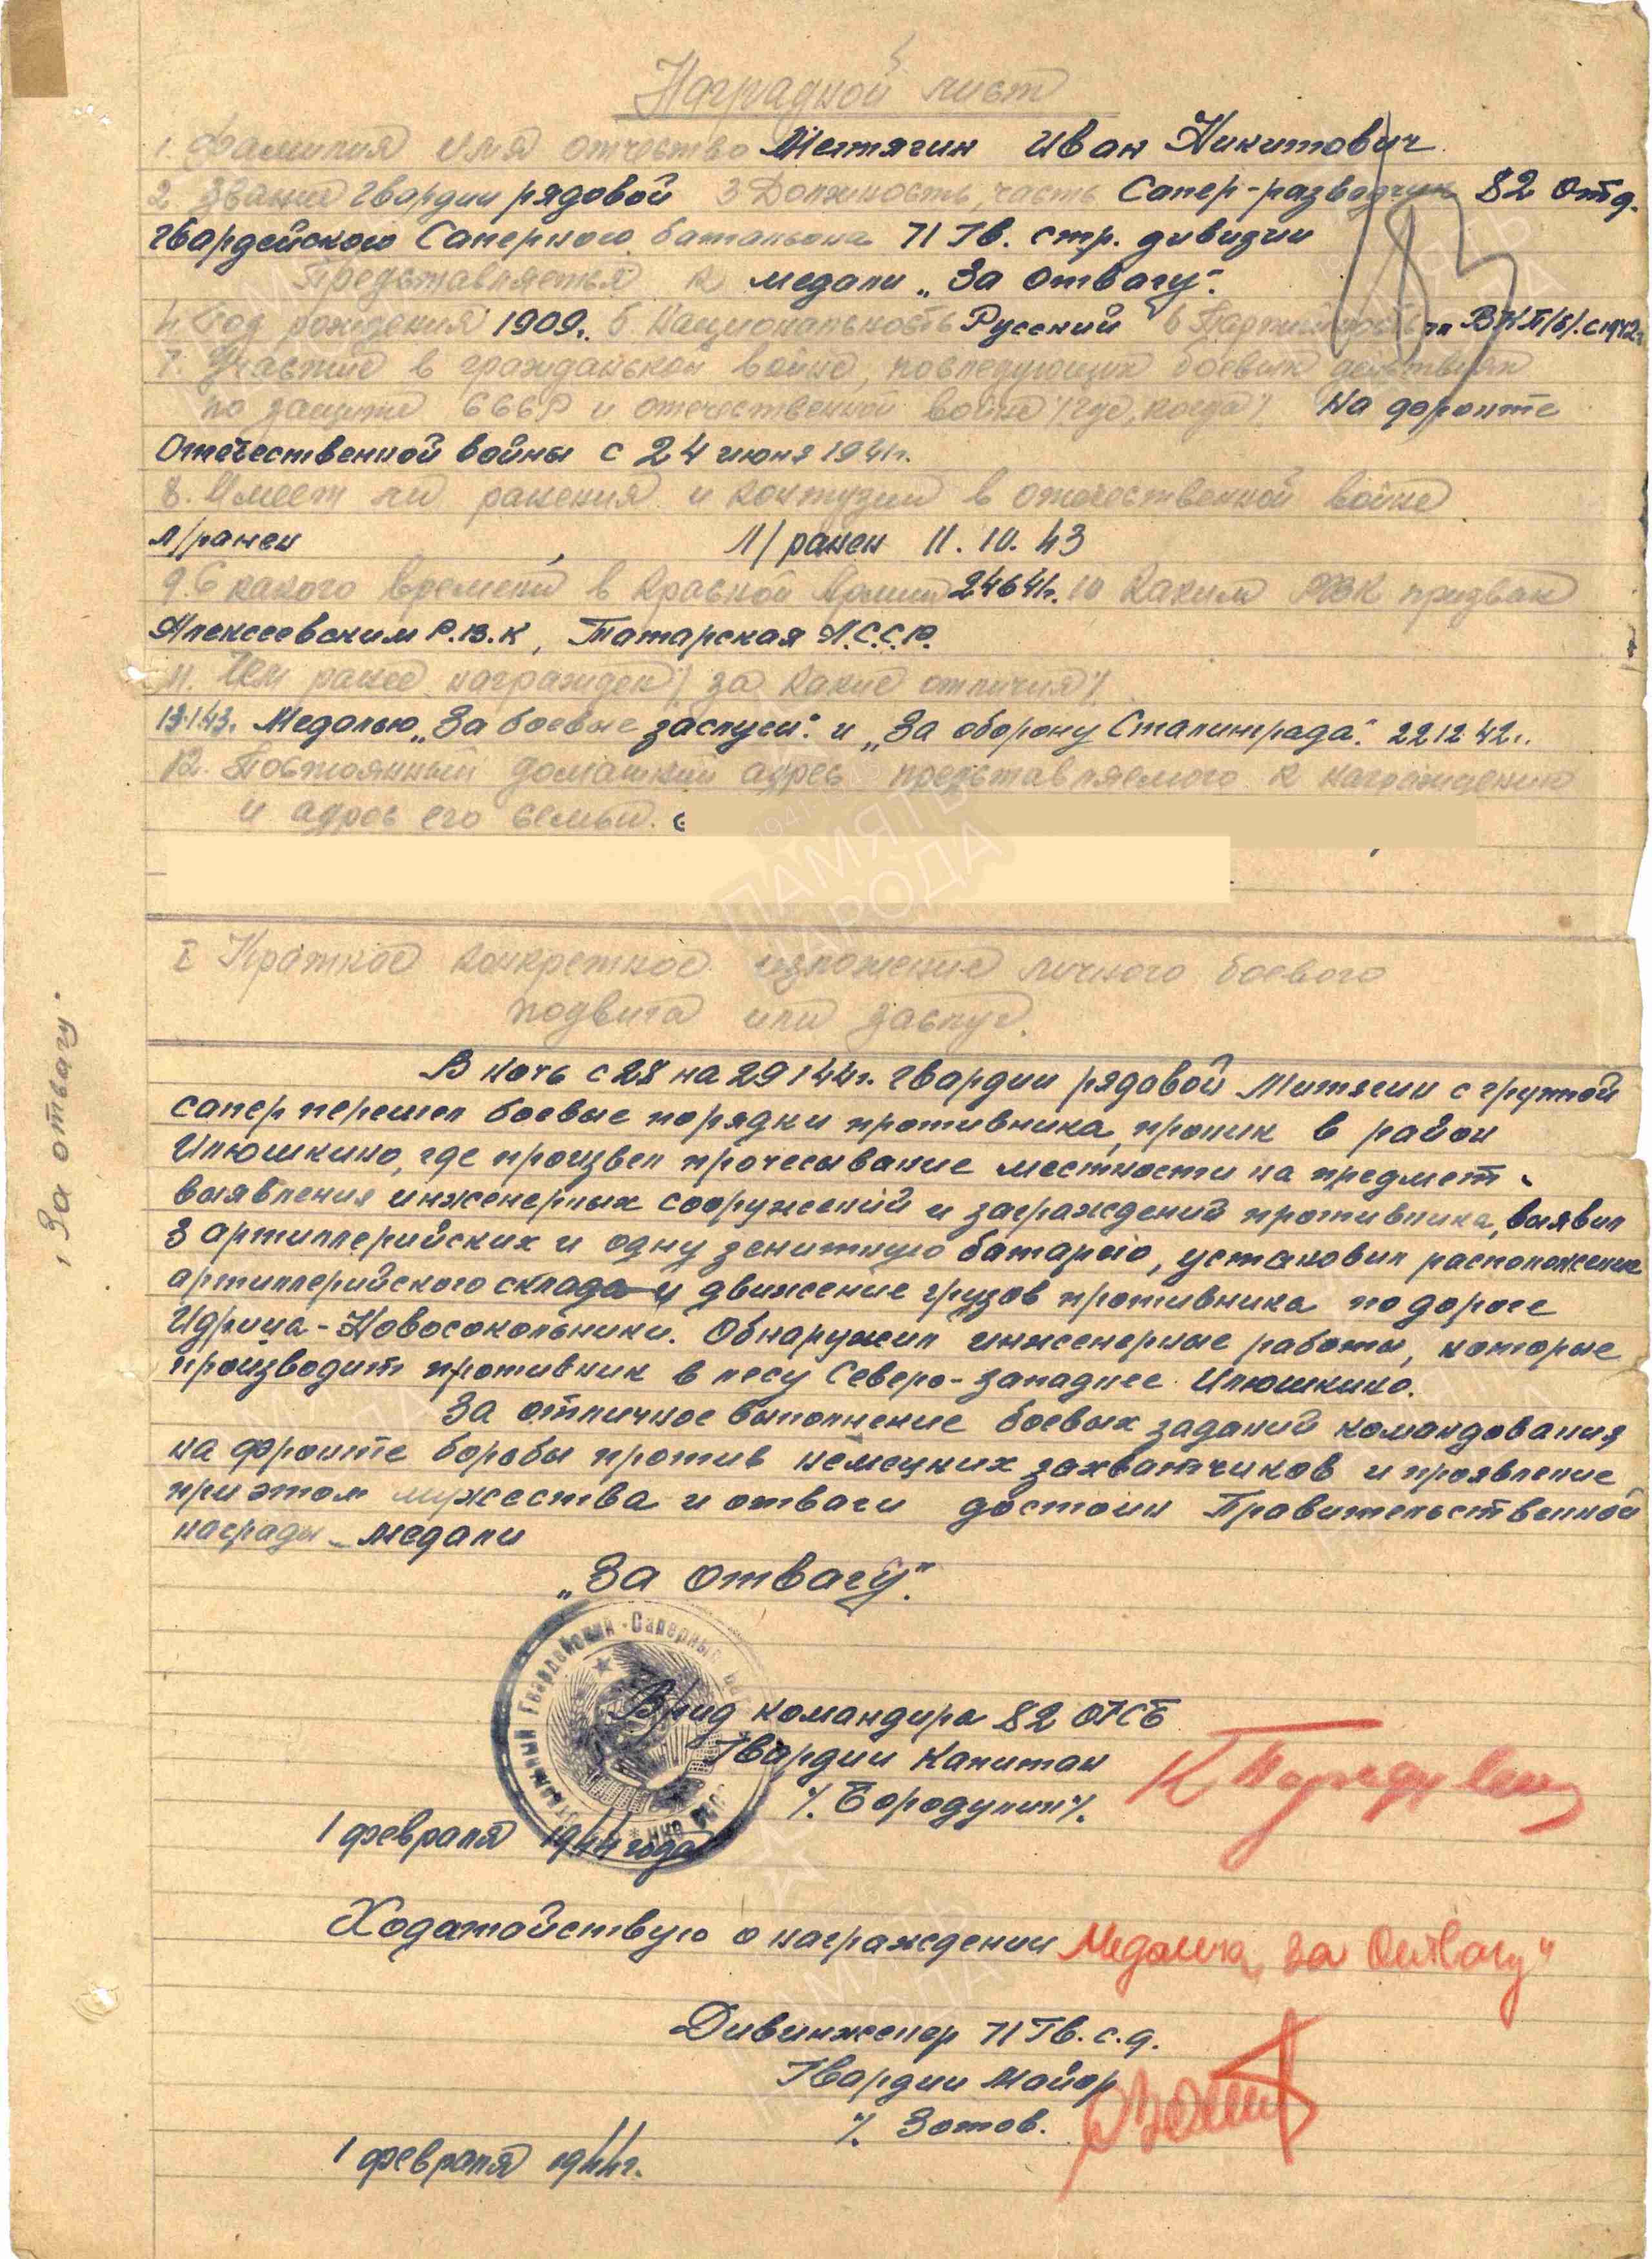 Наградной лист
1 Фамилия имя отчество Метягин Иван Никитович
2 Звание гвардии рядовой 3 Должность, часть Сапер-разведчик 82 Отд.
гвардейского Саперного батальона 71 Гв. стр. дивизии
Представляется к медали „За отвагу".
4. Год рождения 1909г. 5. Национальность Русский 6 Партийность чл ВКП/б/. с 1942г
7. Участие в гражданской войне, последующих боевых действиях
по защите СССР и отечественной войне /где, когда/ На фронте
Отечественной войны с 24 июня 1941г.
8. Имеет ли ранения и контузии в отечественной войне
л/ранен , Л/ранен 11.10.43
9. С какого времени в Красной Армии 24641г. 10 Каким РВК призван
Алексеевским Р.В.К, Татарская А.С.С.Р.
11. Чем ранее награжден /за какие отличия/
13.1.43. Медалью „За боевые заслуги". и „За оборону Сталинграда". 22 12 42г.
12. Постоянный домашний адрес представляемого к награждению
и адрес его семьи. с
I Краткое конкретное изложение личного боевого
подвига или заслуг.
В ночь с 28 на 29 1 44г. гвардии рядовой Митягин с группой
сапер перешел боевые порядки противника, проник в район
Илюшкино, где произвел прочесывание местности на предмет
выявления инженерных сооружений и заграждений противника, выявил
3 артиллерийских и одну зенитную батарею, установил расположение
артиллерийского склада и движение грузов противника по дороге
Идрица-Новосокольники. Обнаружил инженерные работы, которые
производит противник в лесу Северо-западнее Илюшкино.
За отличное выполнение боевых заданий командования
на фронте борьбы против немецких захватчиков и проявление
при этом мужества и отваги достоин Правительственной
награды - медали
„За отвагу".
Отдельный Гвардейский Саперный
Врид командира 82 ОГСБ
Гвардии капитан
/. Бородулин/.
1 февраля 1944 года
Ходатайствую о награждении Медалью „За Отвагу"
Дивинженер 71 Гв. с.д.
Гвардии Майор
/. Зотов.
1 февраля 1944г.
За отвагу.
ПАМЯТЬ
НАРОДА